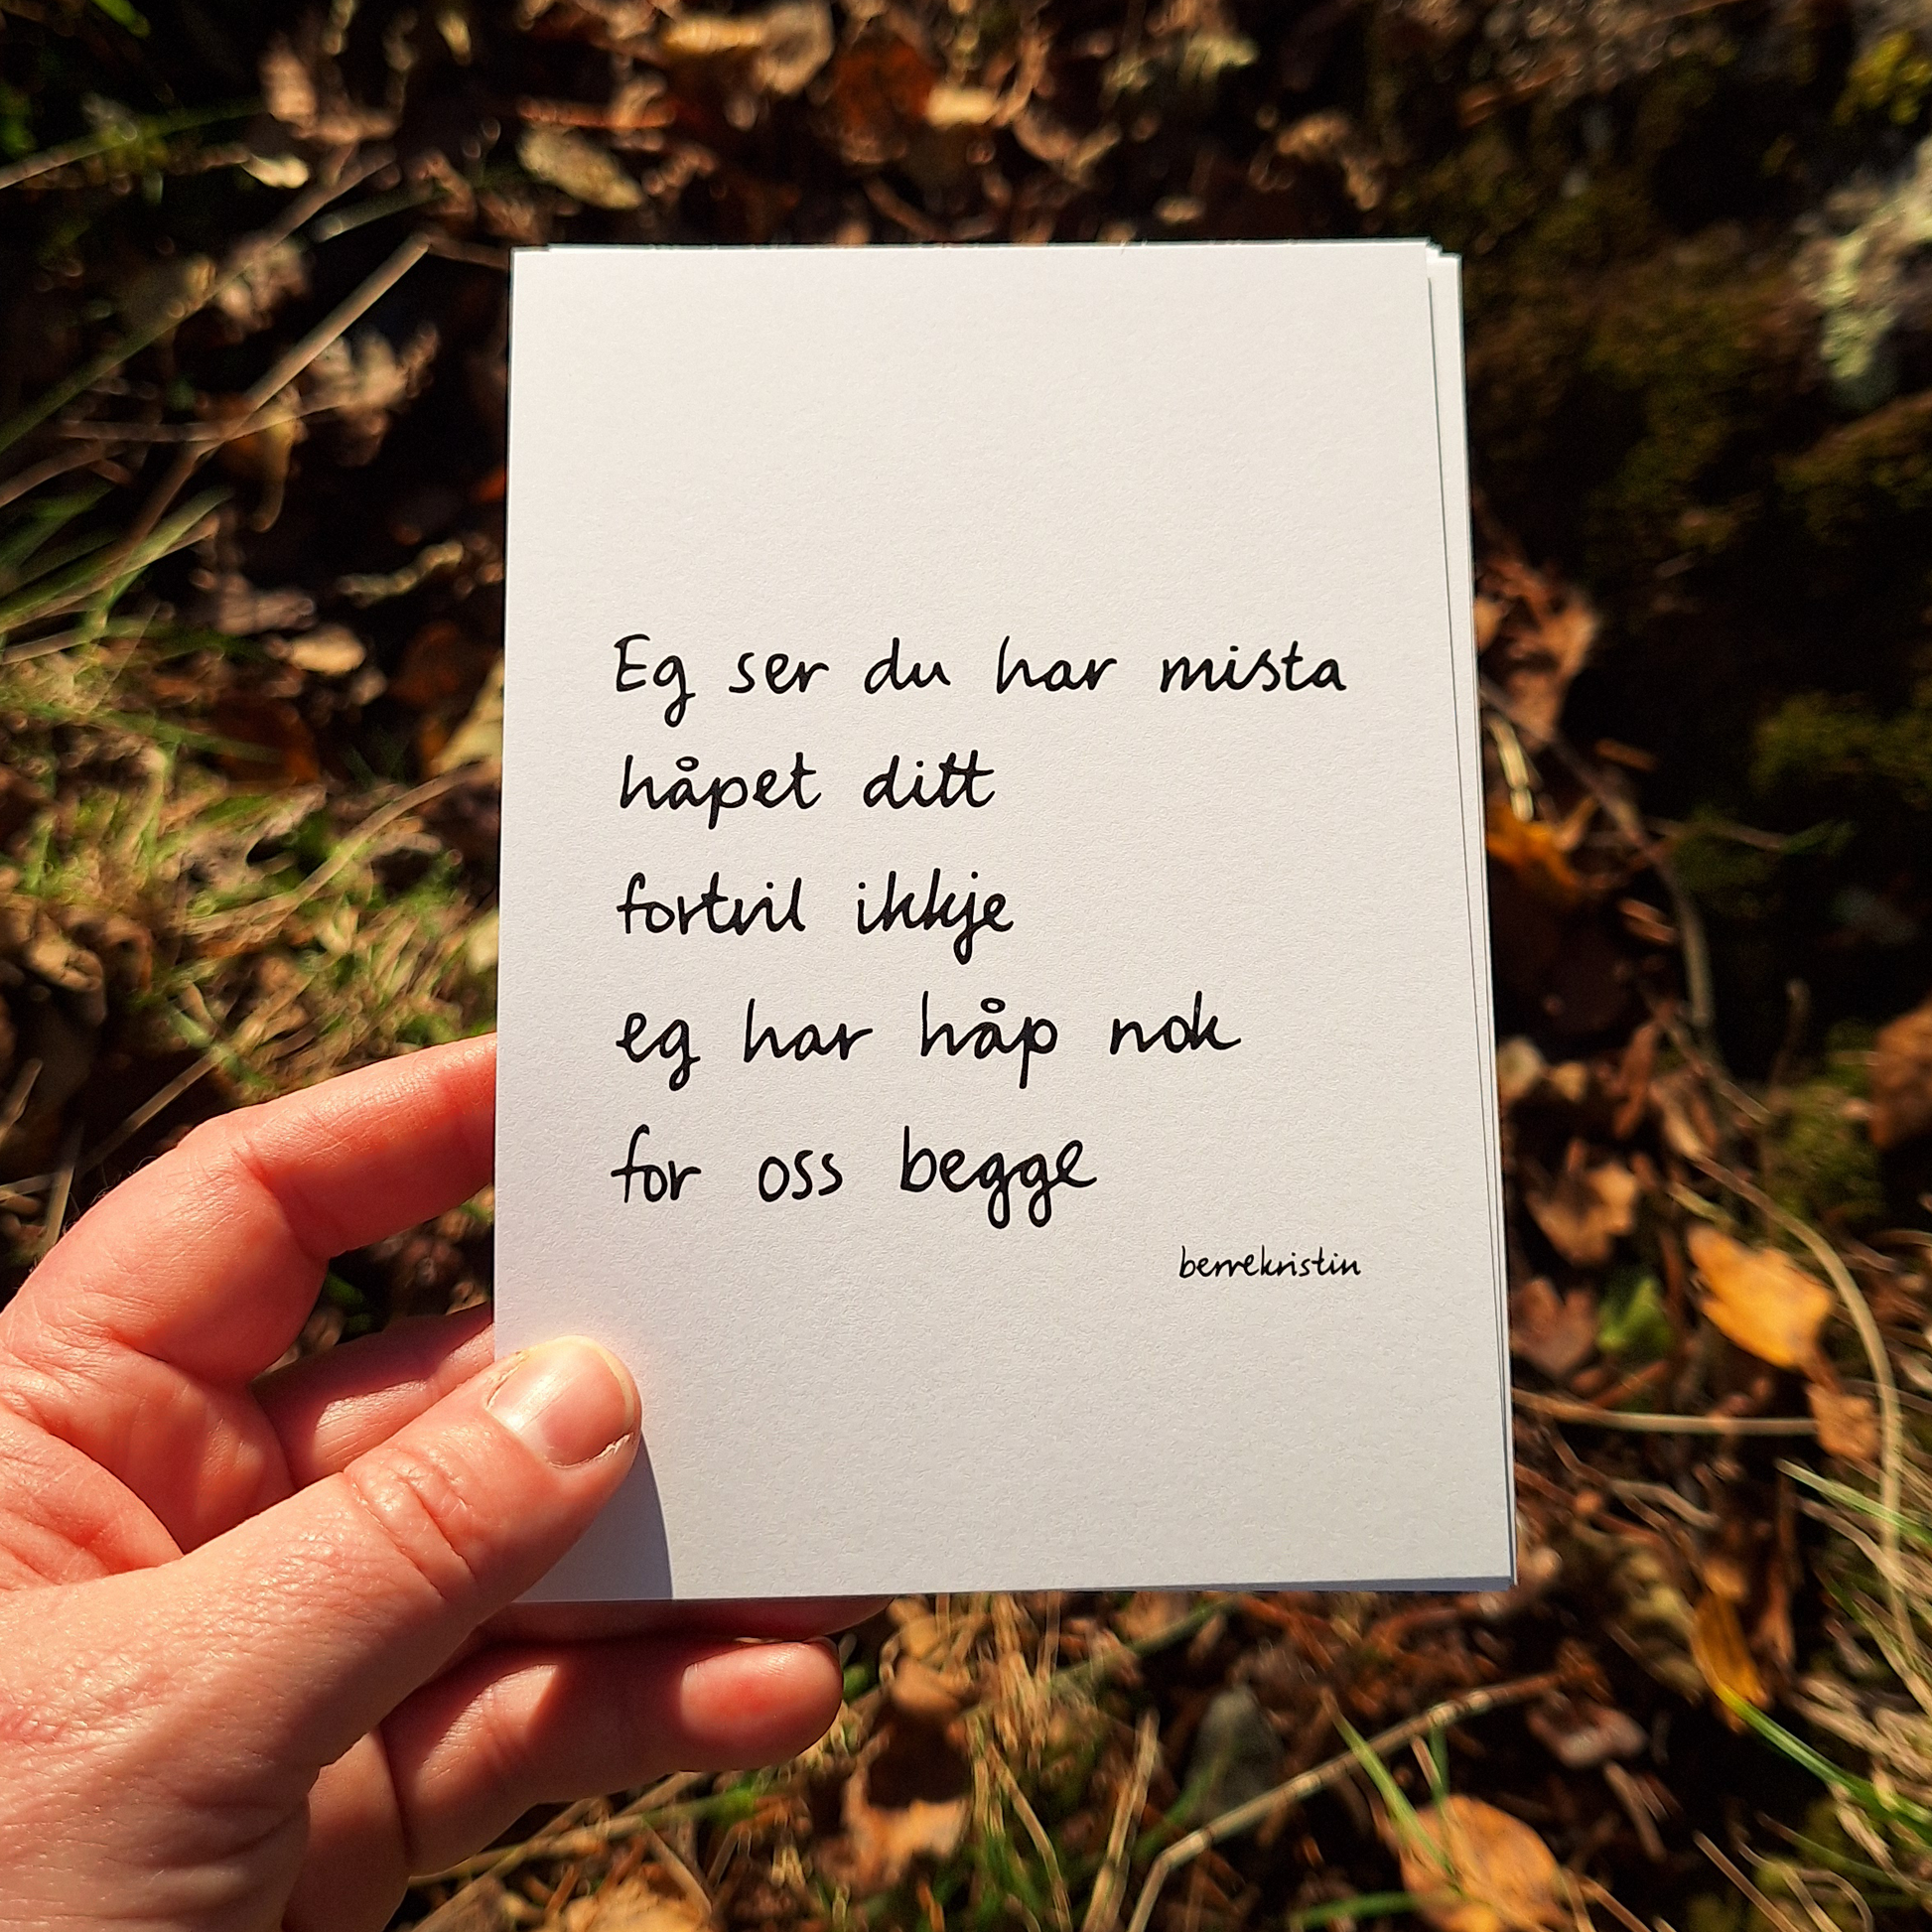 Eg ser du har mista
håpet ditt
fortvil ikkje
eg har håp nok
for oss begge
berrekristin